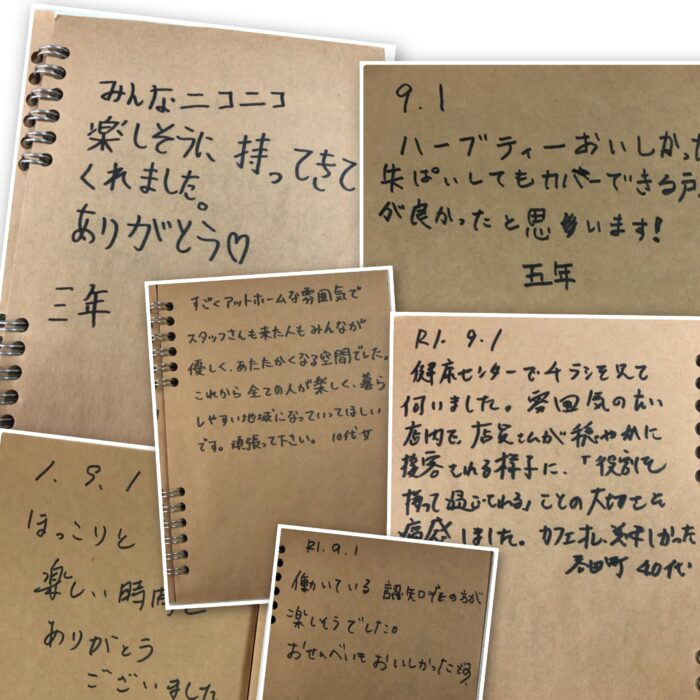 みんなニコニコ
楽しそうに 持ってきて
くれました。
ありがとう♡
三年
9.1
ハーブティーおいしかった
失ぱいしてもカバーできる戸
が良かったと思います!
五年
すごくアットホームな雰囲気で
スタッフさんも来た人もみんなが
優しく、あたたかくなる空間でした。
これから全ての人が楽しく、暮ら
しやすい地域になっていってほしい
です。頑張って下さい。 10代女
R1.9.1
健康センターでチラシを見て
伺いました。雰囲気の良い
店内で、店員さんが穏やかに
接客される様子に、「役割を
持って過ごされる」ことの大切さを
痛感しました。カフェオレ、美味しかった
40代
1.9.1
ほっこりと
楽しい時間を
ありがとう
ございました
R1.9.1
働いている 認知症の方が
楽しそうでした。
おせんべいもおいしかったです。